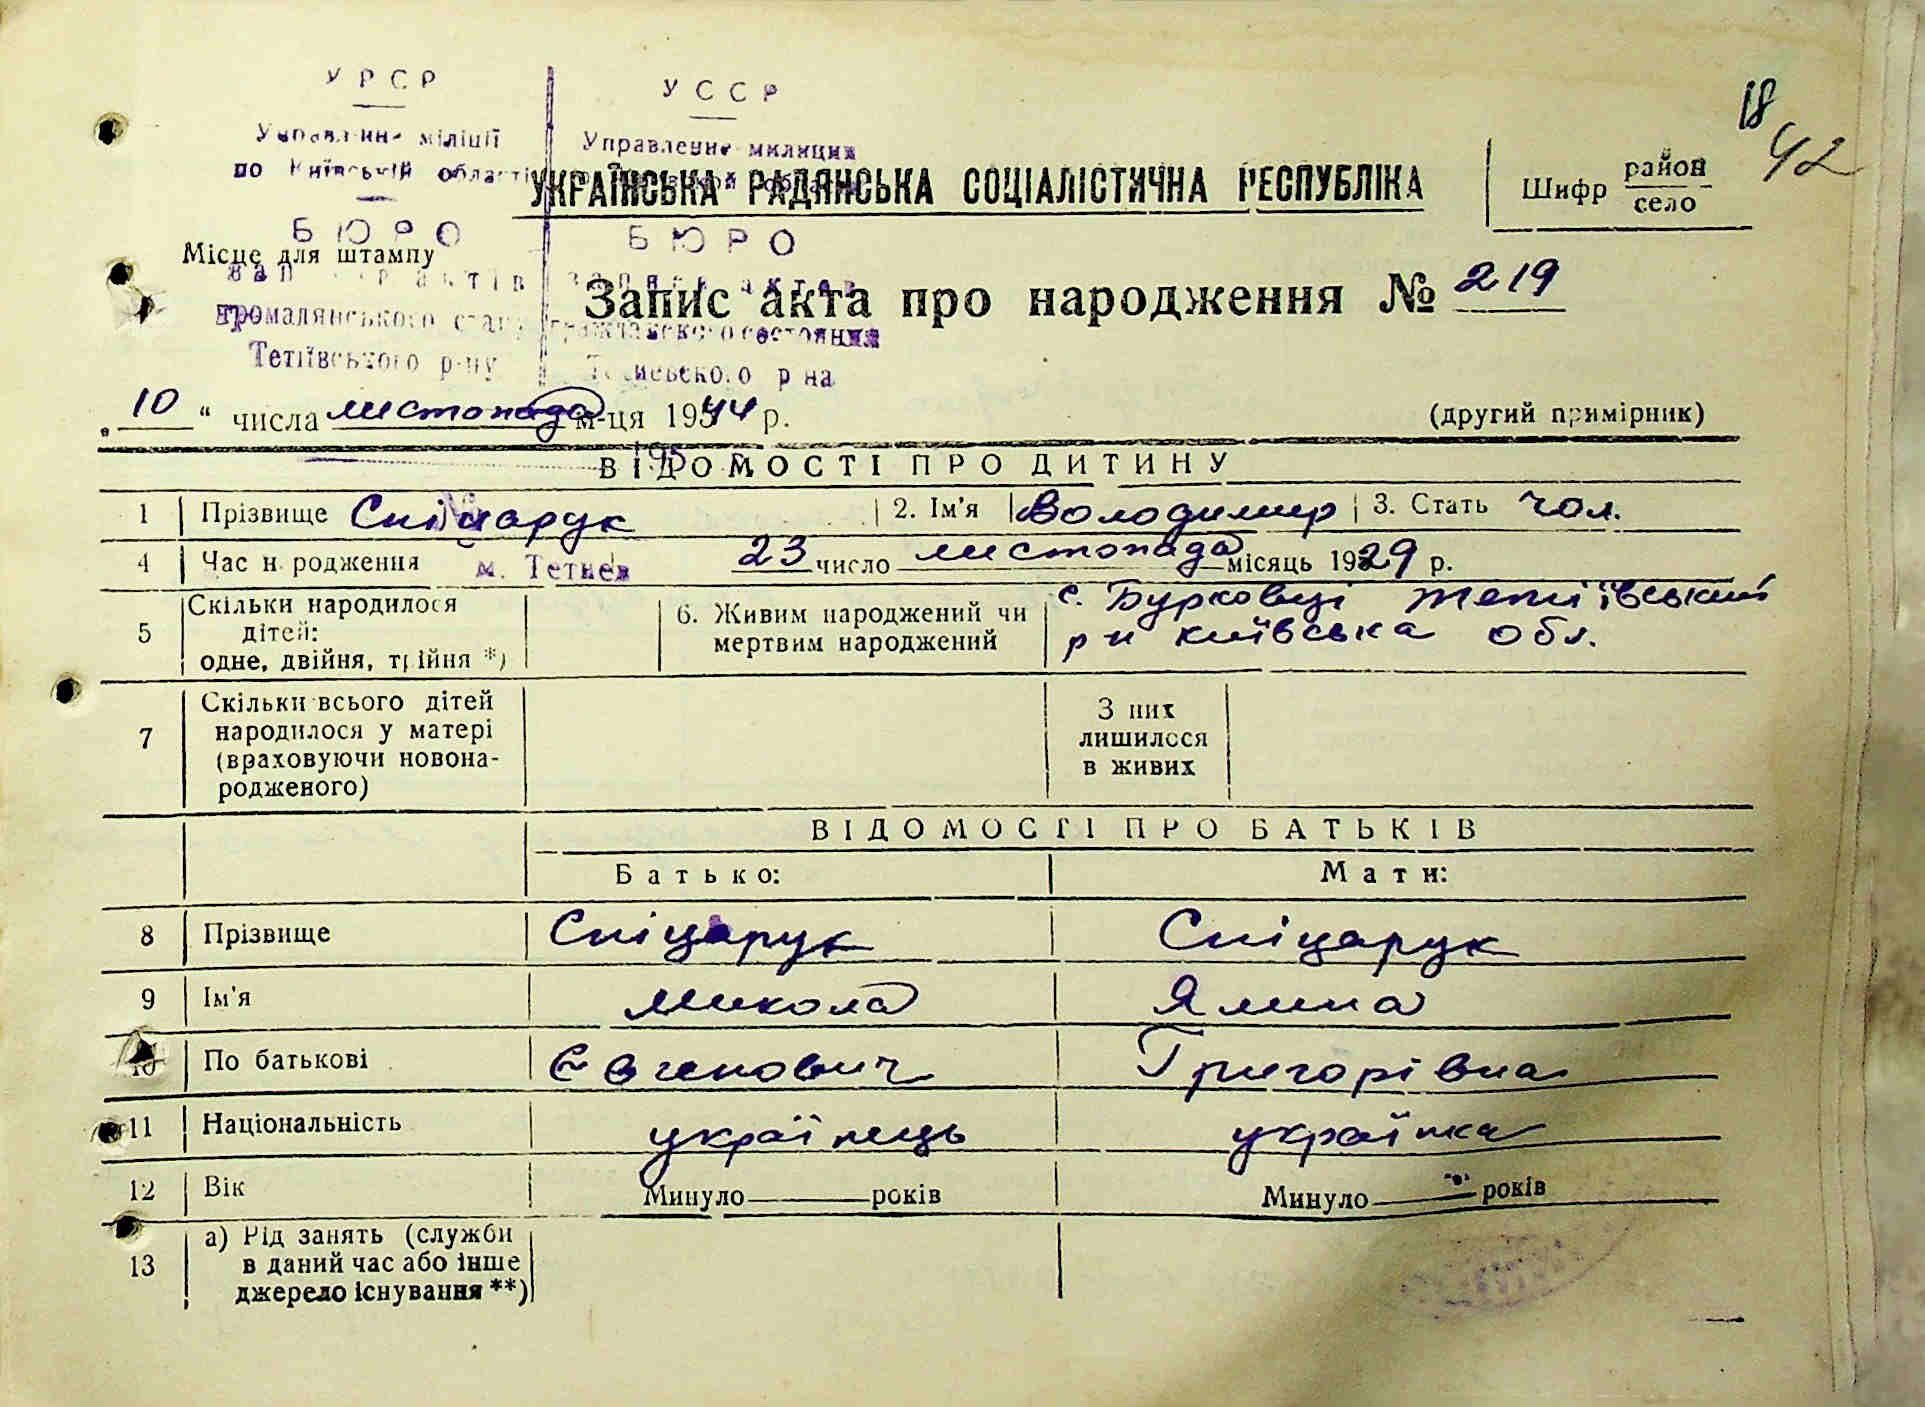 УРСР
УССР
18
42
Управління міліції
Управление милиции
по Київській області
УКРАЇНСЬКА РАДЯНСЬКА СОЦІАЛІСТИЧНА РЕСПУБЛІКА
Шифр район село
БЮРО
БЮРО
Місце для штампу
зап актів
записи актов
Запис акта про народження № 219
громадянського стану
гражданского состояния
Тетіївського р-ну
Тетиевского р на
„10“ числа листопада м-ця 1944 р.
(другий примірник)
ВІДОМОСТІ ПРО ДИТИНУ
1 Прізвище Спіцарук 2. Ім'я Володимир 3. Стать чол.
4 Час народження м. Тетиев 23 число листопада місяць 1929 р.
5 Скільки народилося дітей: одне, двійня, трійня *)
6. Живим народжений чи мертвим народжений
с. Бурковці Тетіївський
р н київська обл.
7 Скільки всього дітей народилося у матері (враховуючи новонародженого)
З них лишилося в живих
ВІДОМОСТІ ПРО БАТЬКІВ
Батько: Мати:
8 Прізвище Спіцарук Спіцарук
9 Ім'я Микола Ялина
10 По батькові Євгенович Григорівна
11 Національність українець українка
12 Вік Минуло років Минуло років
13 а) Рід занять (служби в даний час або інше джерело існування **)